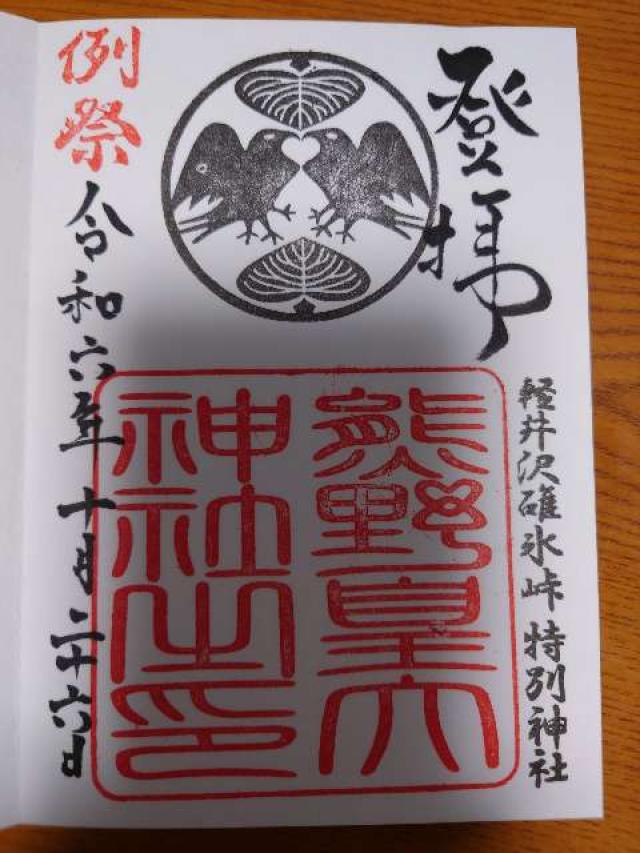 登拝
軽井沢碓氷峠特別神社
熊野皇大
神社之印
例祭
令和六年十月二十六日